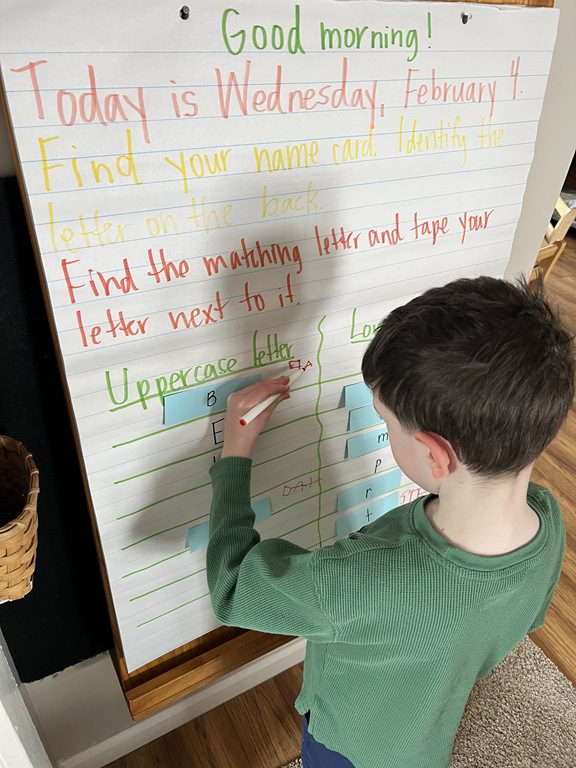 Good morning!
Today is Wednesday, February 4.
Find your name card. Identify the
letter on the back.
Find the matching letter and tape your
letter next to it.
Uppercase letter
B
E
m
p
r
t